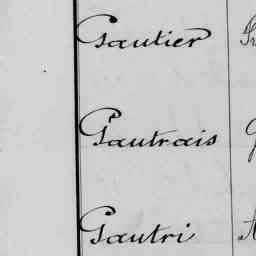 Gautier
Gautrais
Gautri